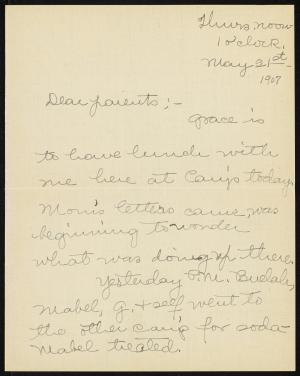 Thurs. noon
1 o'clock.
May 31st
1907
Dear parents;-
Grace is
to have lunch with
me here at Camp today.
Mom's letters came, was
beginning to wonder
what was doing up there.
Yesterday P.M.
Mabel, G. + self went to
the other camp for soda
Mabel treated.